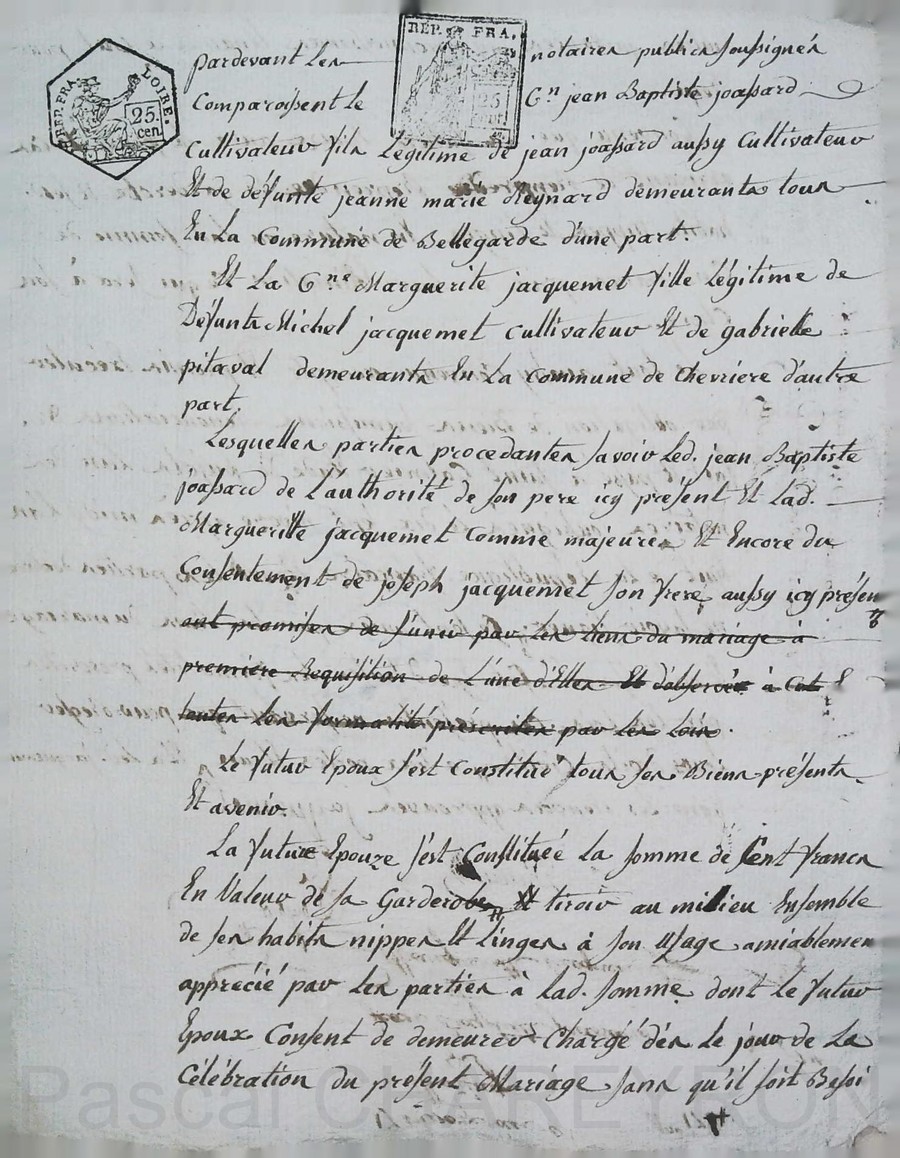 REP. FRA. LOIRE. 25. cen.
REP. FRA. 25
pardevant Les notaires publics soussignés
Comparoissent le Cn jean Baptiste joassard
Cultivateur fils Légitime de jean joassard aussy Cultivateur
Et de défunte jeanne marie Reynard demeurants tous
En La Commune de Bellegarde d'une part.
Et La Cne Marguerite jacquemet fille Légitime de
Défunts Michel jacquemet cultivateur Et de gabrielle
pitaval demeurants En La Commune de Chevriere d'autre
part.
Lesquelles parties procedantes savoir Led. jean Baptiste
joassard de L'authorité de son pere icy présent Et Lad.
Margueritte jacquemet Comme majeure Et Encore du
Consentement de joseph jacquemet son frere aussy icy présen
ont promises de s'unir par Les liens du mariage à
premiere Requisition de L'une d'Elles Et d'observer à cet E
toutes Les formalité préscrites par Les Loix.
Le futur Epoux s'est Constitué tous ses Biens présents
Et avenir.
La future Epouze s'est Constituée La somme de Cent francs
En Valeur de sa Garderobe Et tiroir au milieu Ensemble
de ses habits nippes Et Linges à son Usage amiablemen
apprécié par Les parties à Lad. somme dont Le futur
Epoux Consent de demeurer Chargé dès Le jour de La
Célébration du présent Mariage sans qu'il soit Besoi
Pascal CHAREYRON